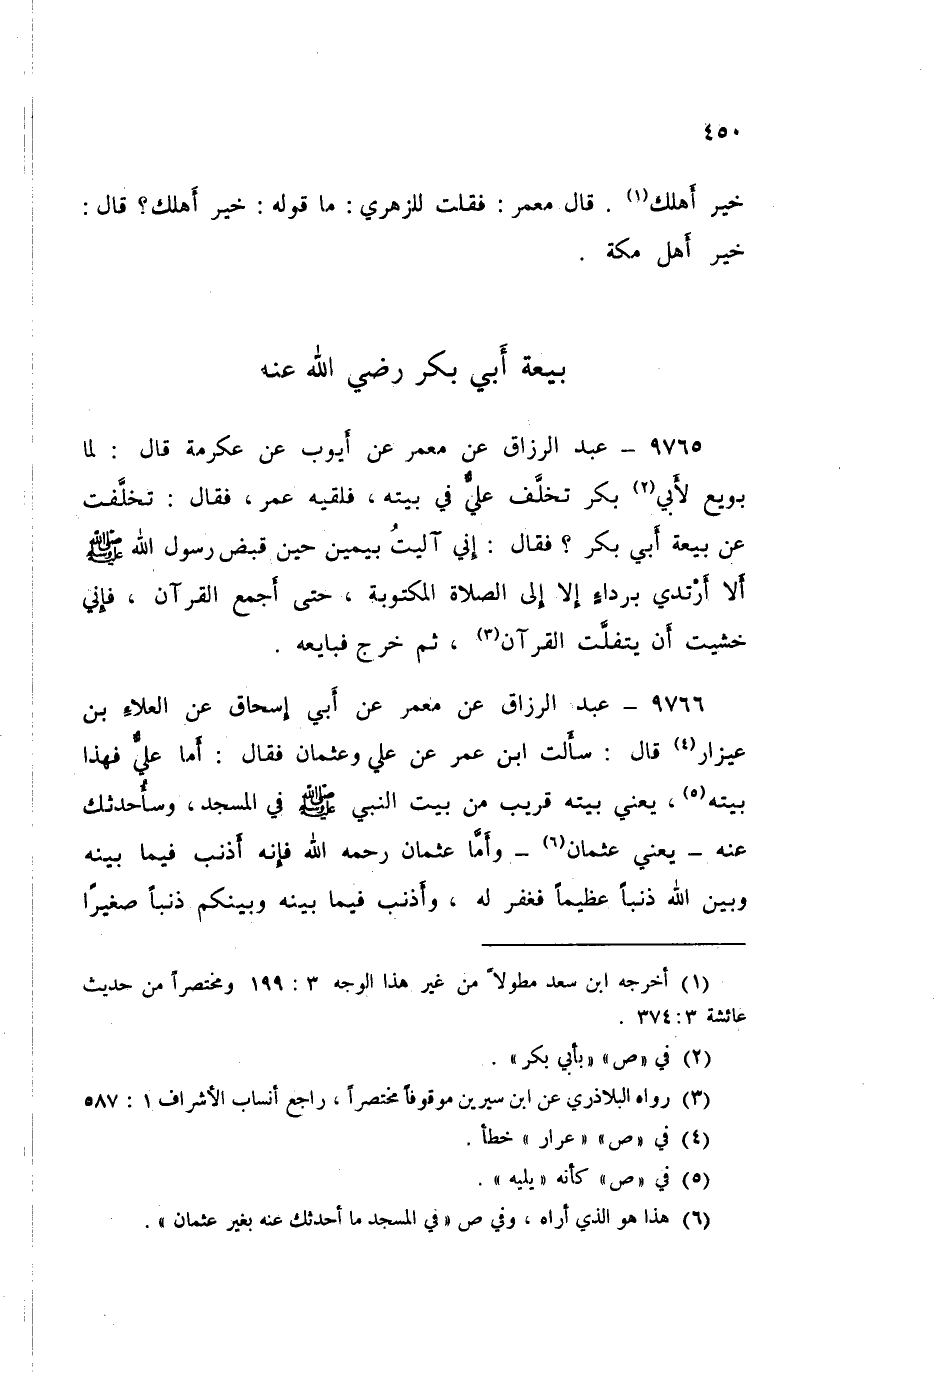 ٤٥٠
خير أهلك(١) . قال معمر : فقلت للزهري : ما قوله : خير أهلك؟ قال :
خير أهل مكة .
بيعة أبي بكر رضي الله عنه
٩٧٦٥ – عبد الرزاق عن معمر عن أيوب عن عكرمة قال : لما
بويع لأبي(٢) بكر تخلَّف عليٌّ في بيته ، فلقيه عمر ، فقال : تخلَّفت
عن بيعة أبي بكر ؟ فقال : إني آليتُ بيمين حين قبض رسول الله ﷺ
ألا أرْتدي برداءٍ إلا إلى الصلاة المكتوبة ، حتى أجمع القرآن ، فإني
خشيت أن يتفلَّت القرآن(٣) ، ثم خرج فبايعه .
٩٧٦٦ – عبد الرزاق عن معمر عن أبي إسحاق عن العلاءِ بن
عيزار(٤) قال : سألت ابن عمر عن علي وعثمان فقال : أما عليٌّ فهذا
بيته(٥) ، يعني بيته قريب من بيت النبي ﷺ في المسجد ، وسأُحدثك
عنه – يعني عثمان(٦) – وأمَّا عثمان رحمه الله فإنه أذنب فيما بينه
وبين الله ذنباً عظيماً فغفر له ، وأذنب فيما بينه وبينكم ذنباً صغيرًا
(١) أخرجه ابن سعد مطولاً من غير هذا الوجه ٣ : ١٩٩ ومختصراً من حديث
عائشة ٣ : ٣٧٤ .
(٢) في «ص» «بأبي بكر» .
(٣) رواه البلاذري عن ابن سيرين موقوفاً مختصراً ، راجع أنساب الأشراف ١ : ٥٨٧
(٤) في «ص» « عرار » خطأ .
(٥) في «ص» كأنه « يليه » .
(٦) هذا هو الذي أراه ، وفي ص « في المسجد ما أحدثك عنه بغير عثمان » .